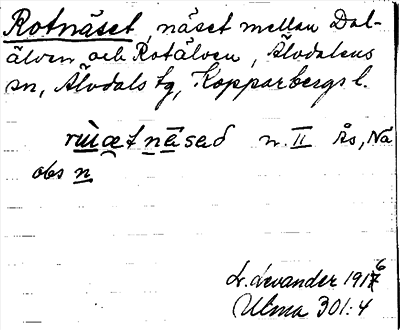 Rotnäset, näset mellan Dal-
älven och Rotälven, Älvdalens
sn, Älvdals tg, Kopparbergs l.
n. II Ås, Nä
obs n
L. Levander 1916
Ulma 301:4